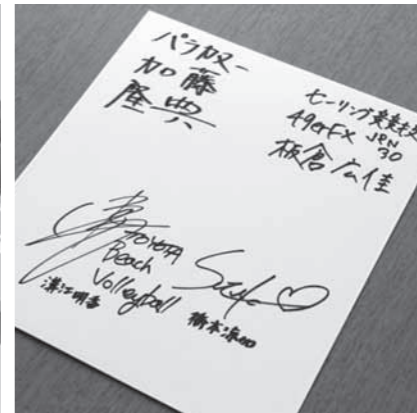 パラカヌー
加藤
隆典
セーリング競技
49erFX JPN
30
板倉広佳
TOYOTA
Beach
Volleyball
溝江明香
橋本涼加